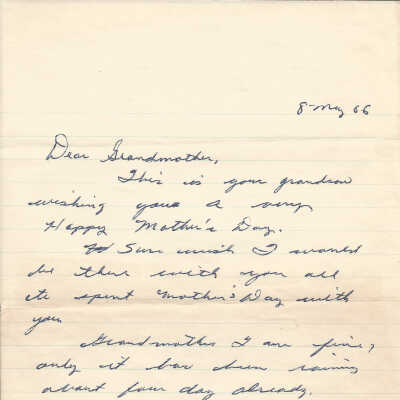 8-May 66
Dear Grandmother,
This is your grandson
wishing you a very
Happy Mother's Day.
Sure wish I would
be there with you all
to spent Mother's Day with
you
Grandmother I am fine,
only it has been raining
about four day already.